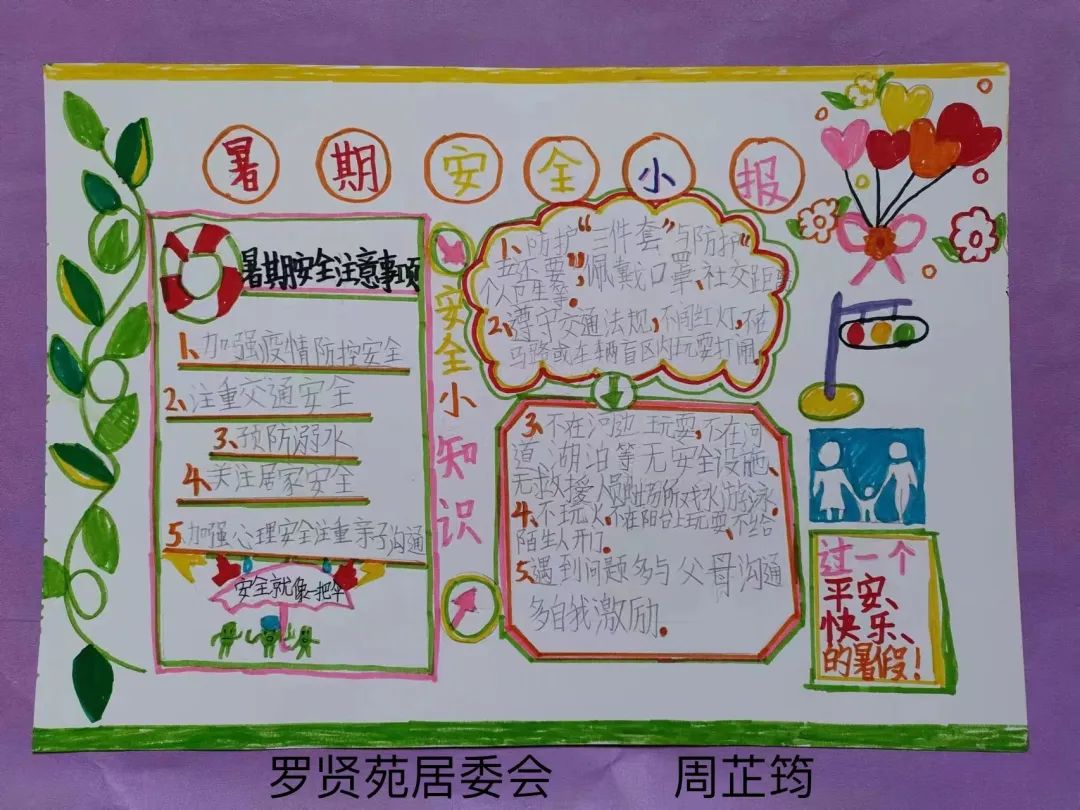 暑期安全小报
暑期安全注意事项
1、加强疫情防控安全
2、注重交通安全
3、预防溺水
4、关注居家安全
5、加强心理安全注重亲子沟通
安全就像一把伞
安全小知识
1、防护“三件套”与防护“
五还要”,佩戴口罩、社交距离
个人卫生等。
2、遵守交通法规,不闯红灯,不在
马路或车辆盲区内玩耍打闹。
3、不在河边玩耍,不在河
道、湖泊等无安全设施、
无救援人员的场所戏水游泳。
4、不玩火,不在阳台上玩耍、不给
陌生人开门。
5、遇到问题多与父母沟通
多自我激励。
过一个
平安、
快乐、
的暑假!
罗贤苑居委会 周芷筠